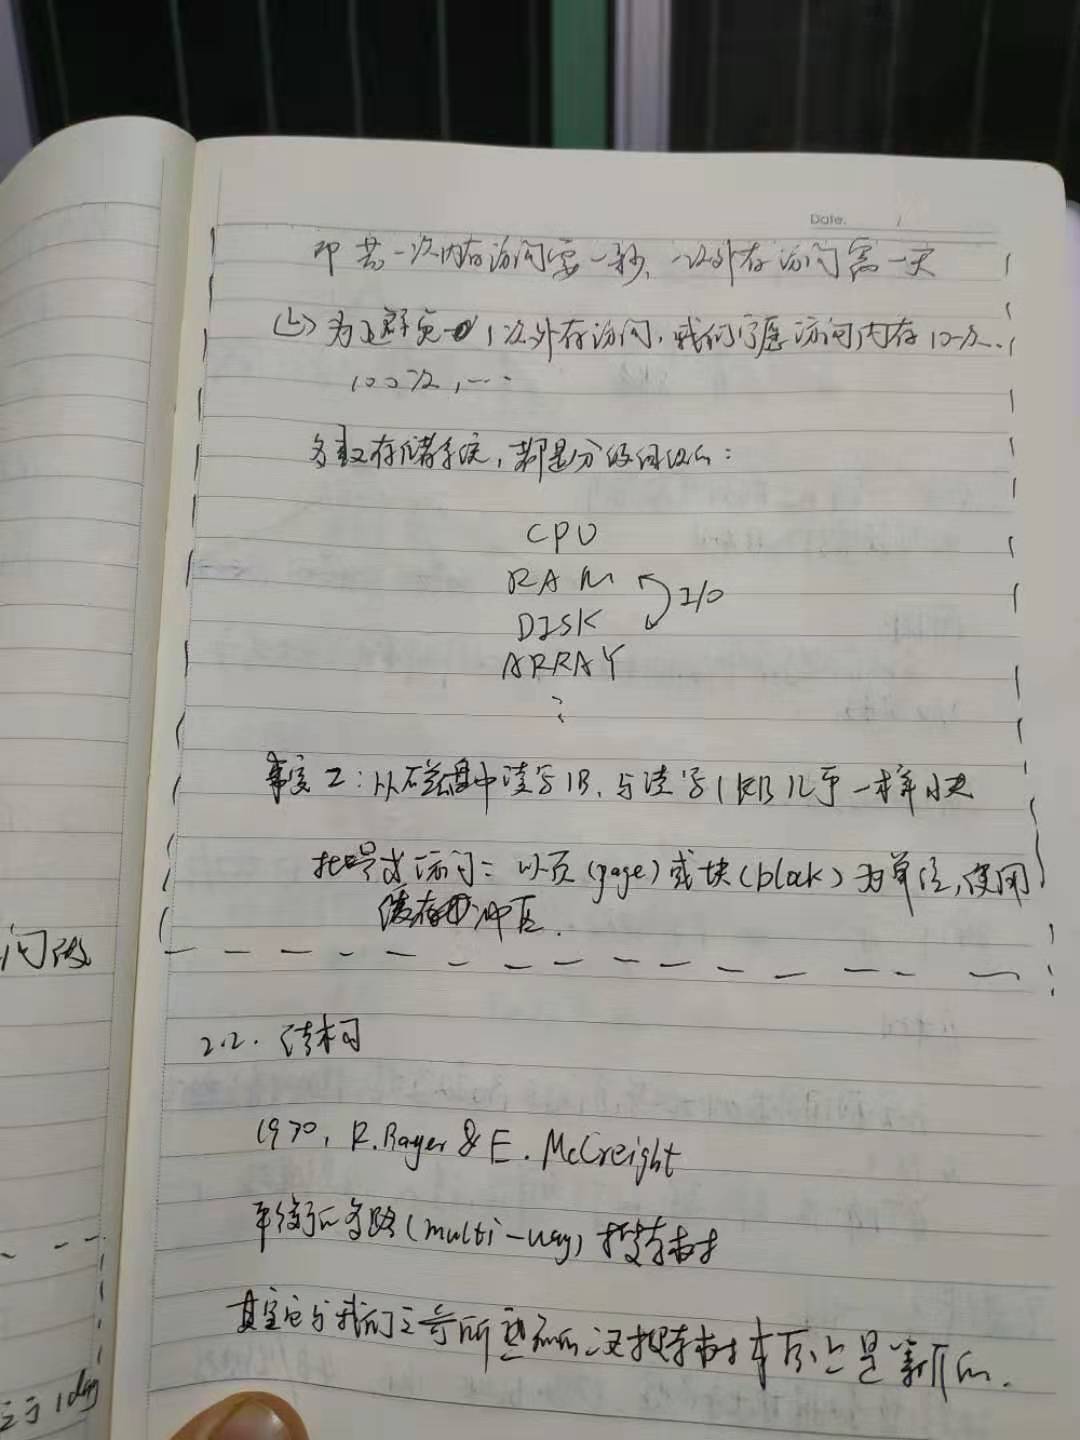 Date. /
即若一次内存访问需一秒、一次外存访问需一天
(L) 为避免 1次外存访问，我们宁愿访问内存10次、
100次，…
多数存储系统，都是分级组织的：
CPU
RAM
I/O
DISK
ARRAY
⋮
事实2：从磁盘中读写1B，与读写1KB几乎一样快
批量式访问：以页(page)或块(block)为单位，使用
缓存冲区.
问做
2.2. 结构
1970, R.Bayer & E. McCreight
平衡的多路(multi-way)搜索树
其实它与我们之前所熟知的二叉搜索树本质上是等价的.